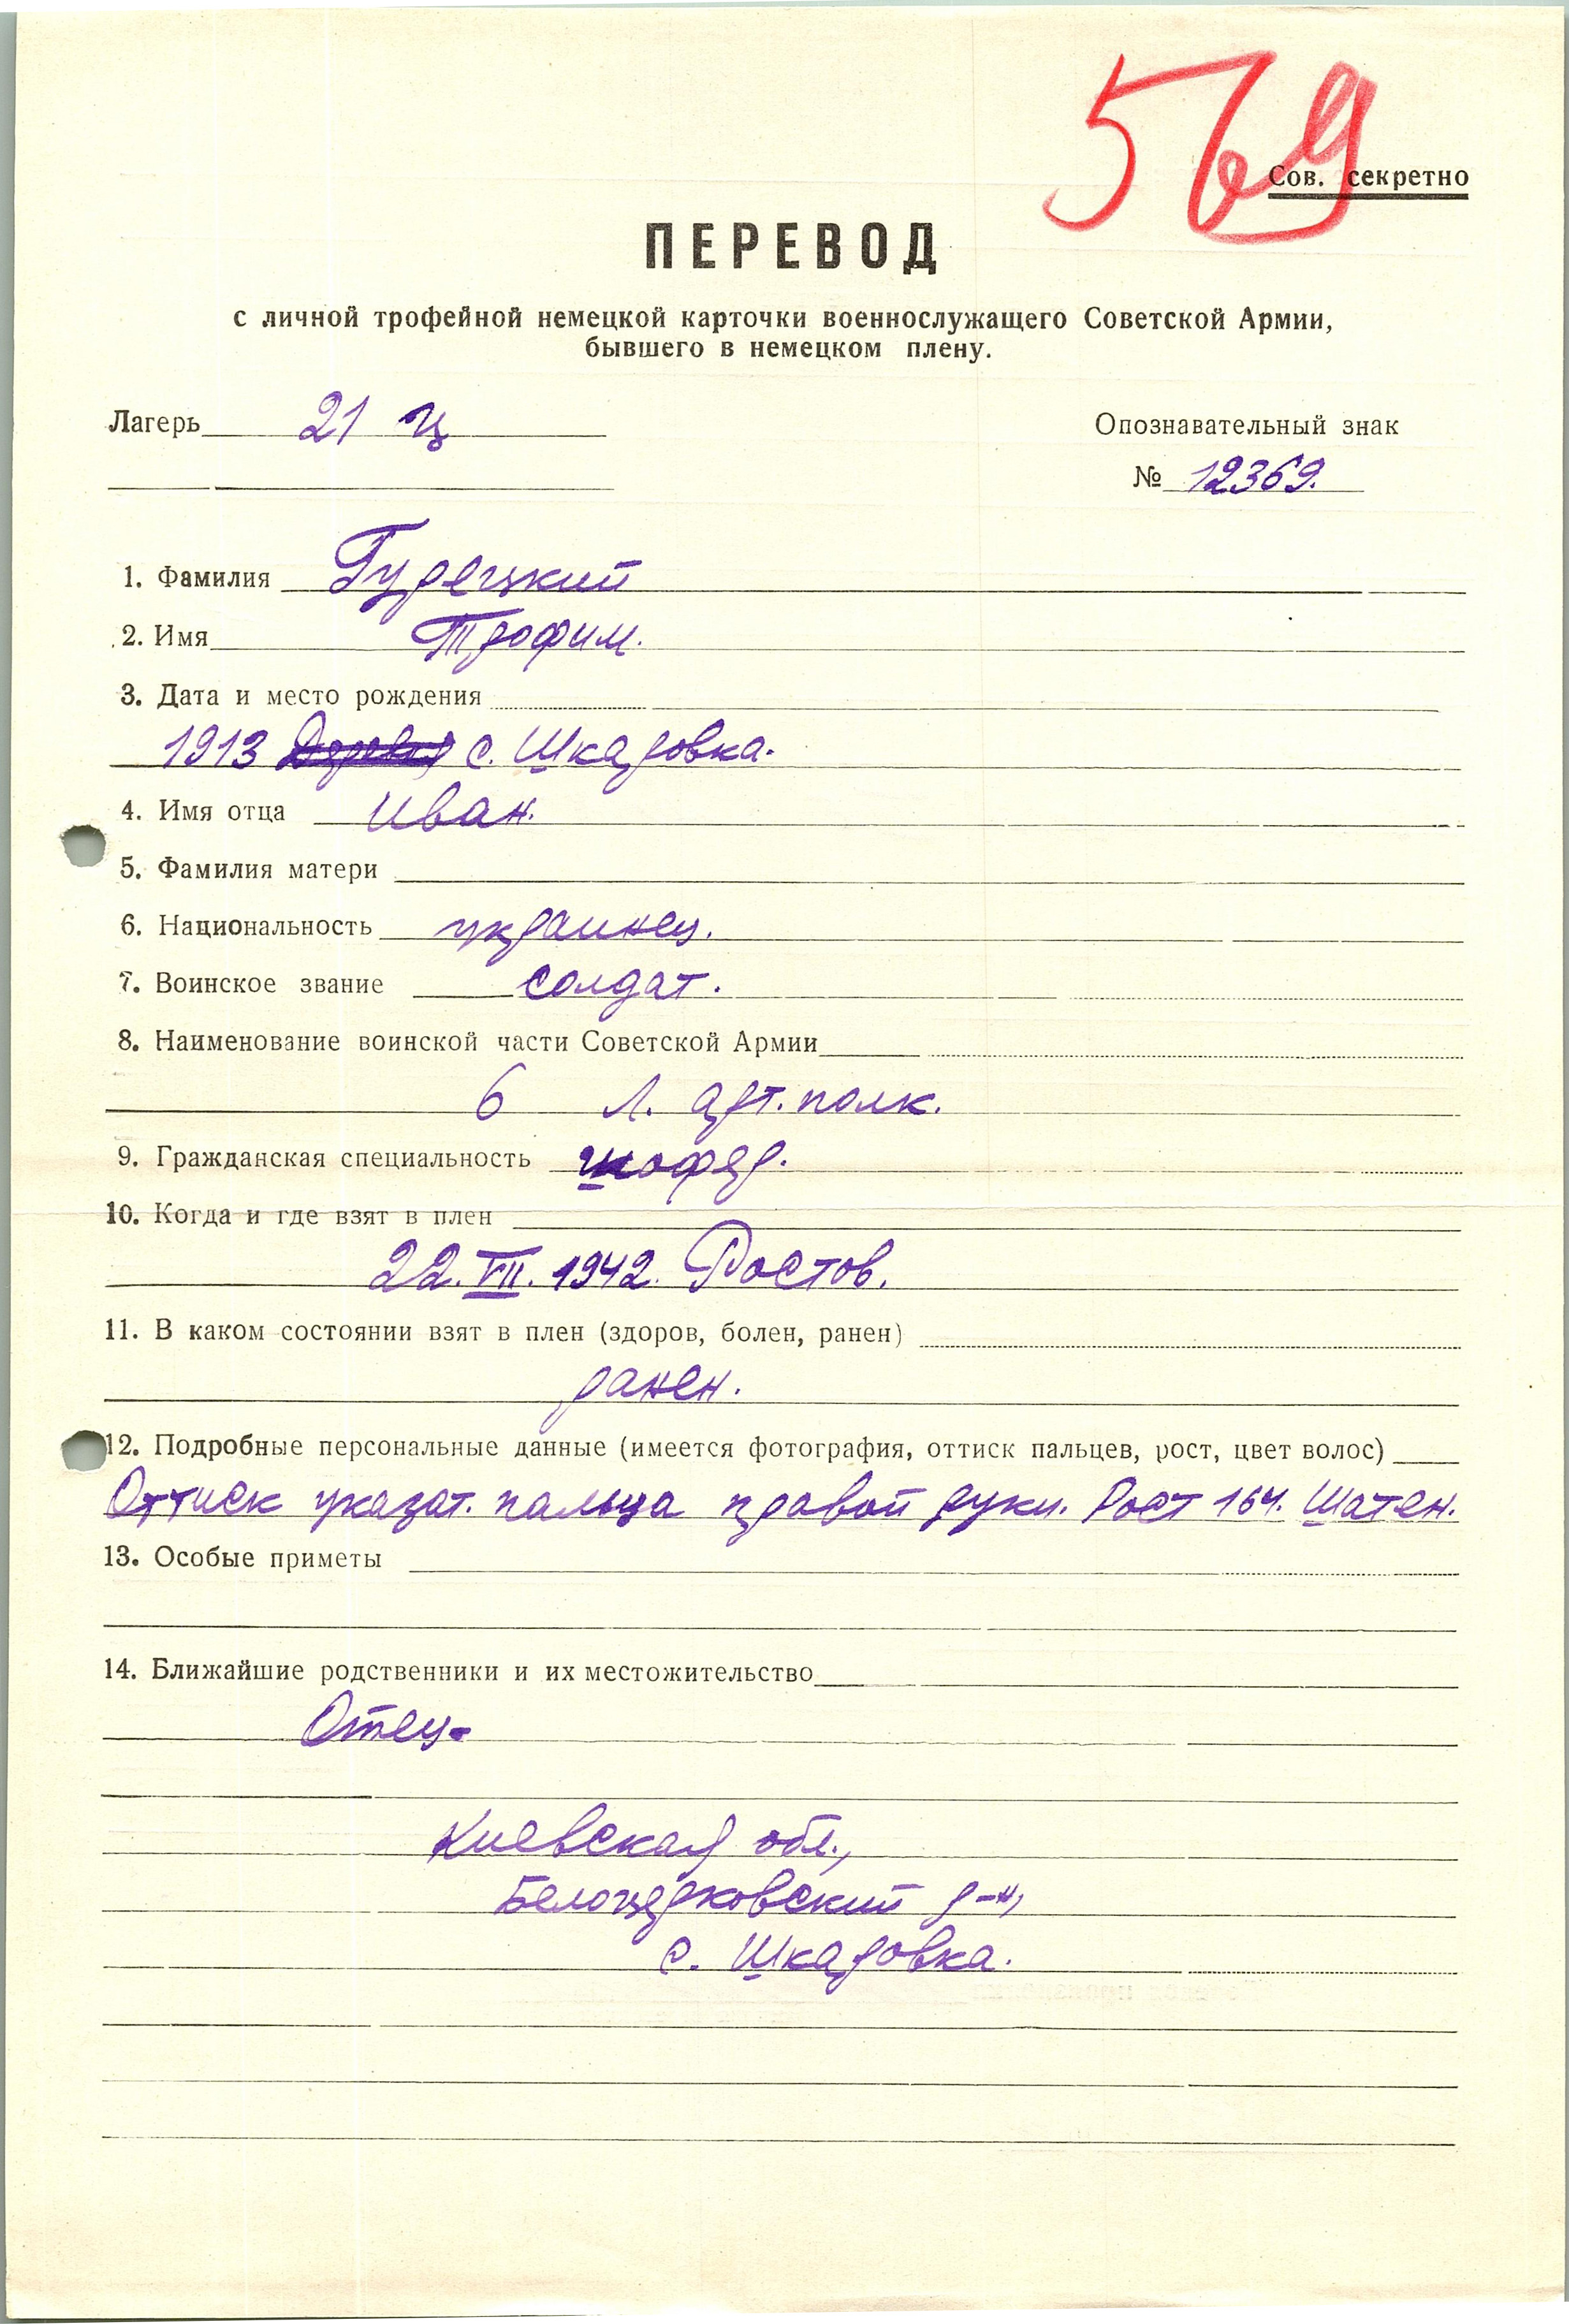 569
Сов. секретно
ПЕРЕВОД
с личной трофейной немецкой карточки военнослужащего Советской Армии,
бывшего в немецком плену.
Лагерь 21 ц
Опознавательный знак
№ 12369.
1. Фамилия Гурецкий
2. Имя Трофим.
3. Дата и место рождения
1913 с. Шкаровка.
4. Имя отца Иван.
5. Фамилия матери
6. Национальность украинец.
7. Воинское звание солдат.
8. Наименование воинской части Советской Армии
6 Л. арт. полк.
9. Гражданская специальность шофер.
10. Когда и где взят в плен
22.VII.1942. Ростов.
11. В каком состоянии взят в плен (здоров, болен, ранен)
ранен.
12. Подробные персональные данные (имеется фотография, оттиск пальцев, рост, цвет волос)
Оттиск указат. пальца правой руки. Рост 164. Шатен.
13. Особые приметы
14. Ближайшие родственники и их местожительство
Отец-
Киевская обл.,
Белоцерковский р-н,
с. Шкаровка.